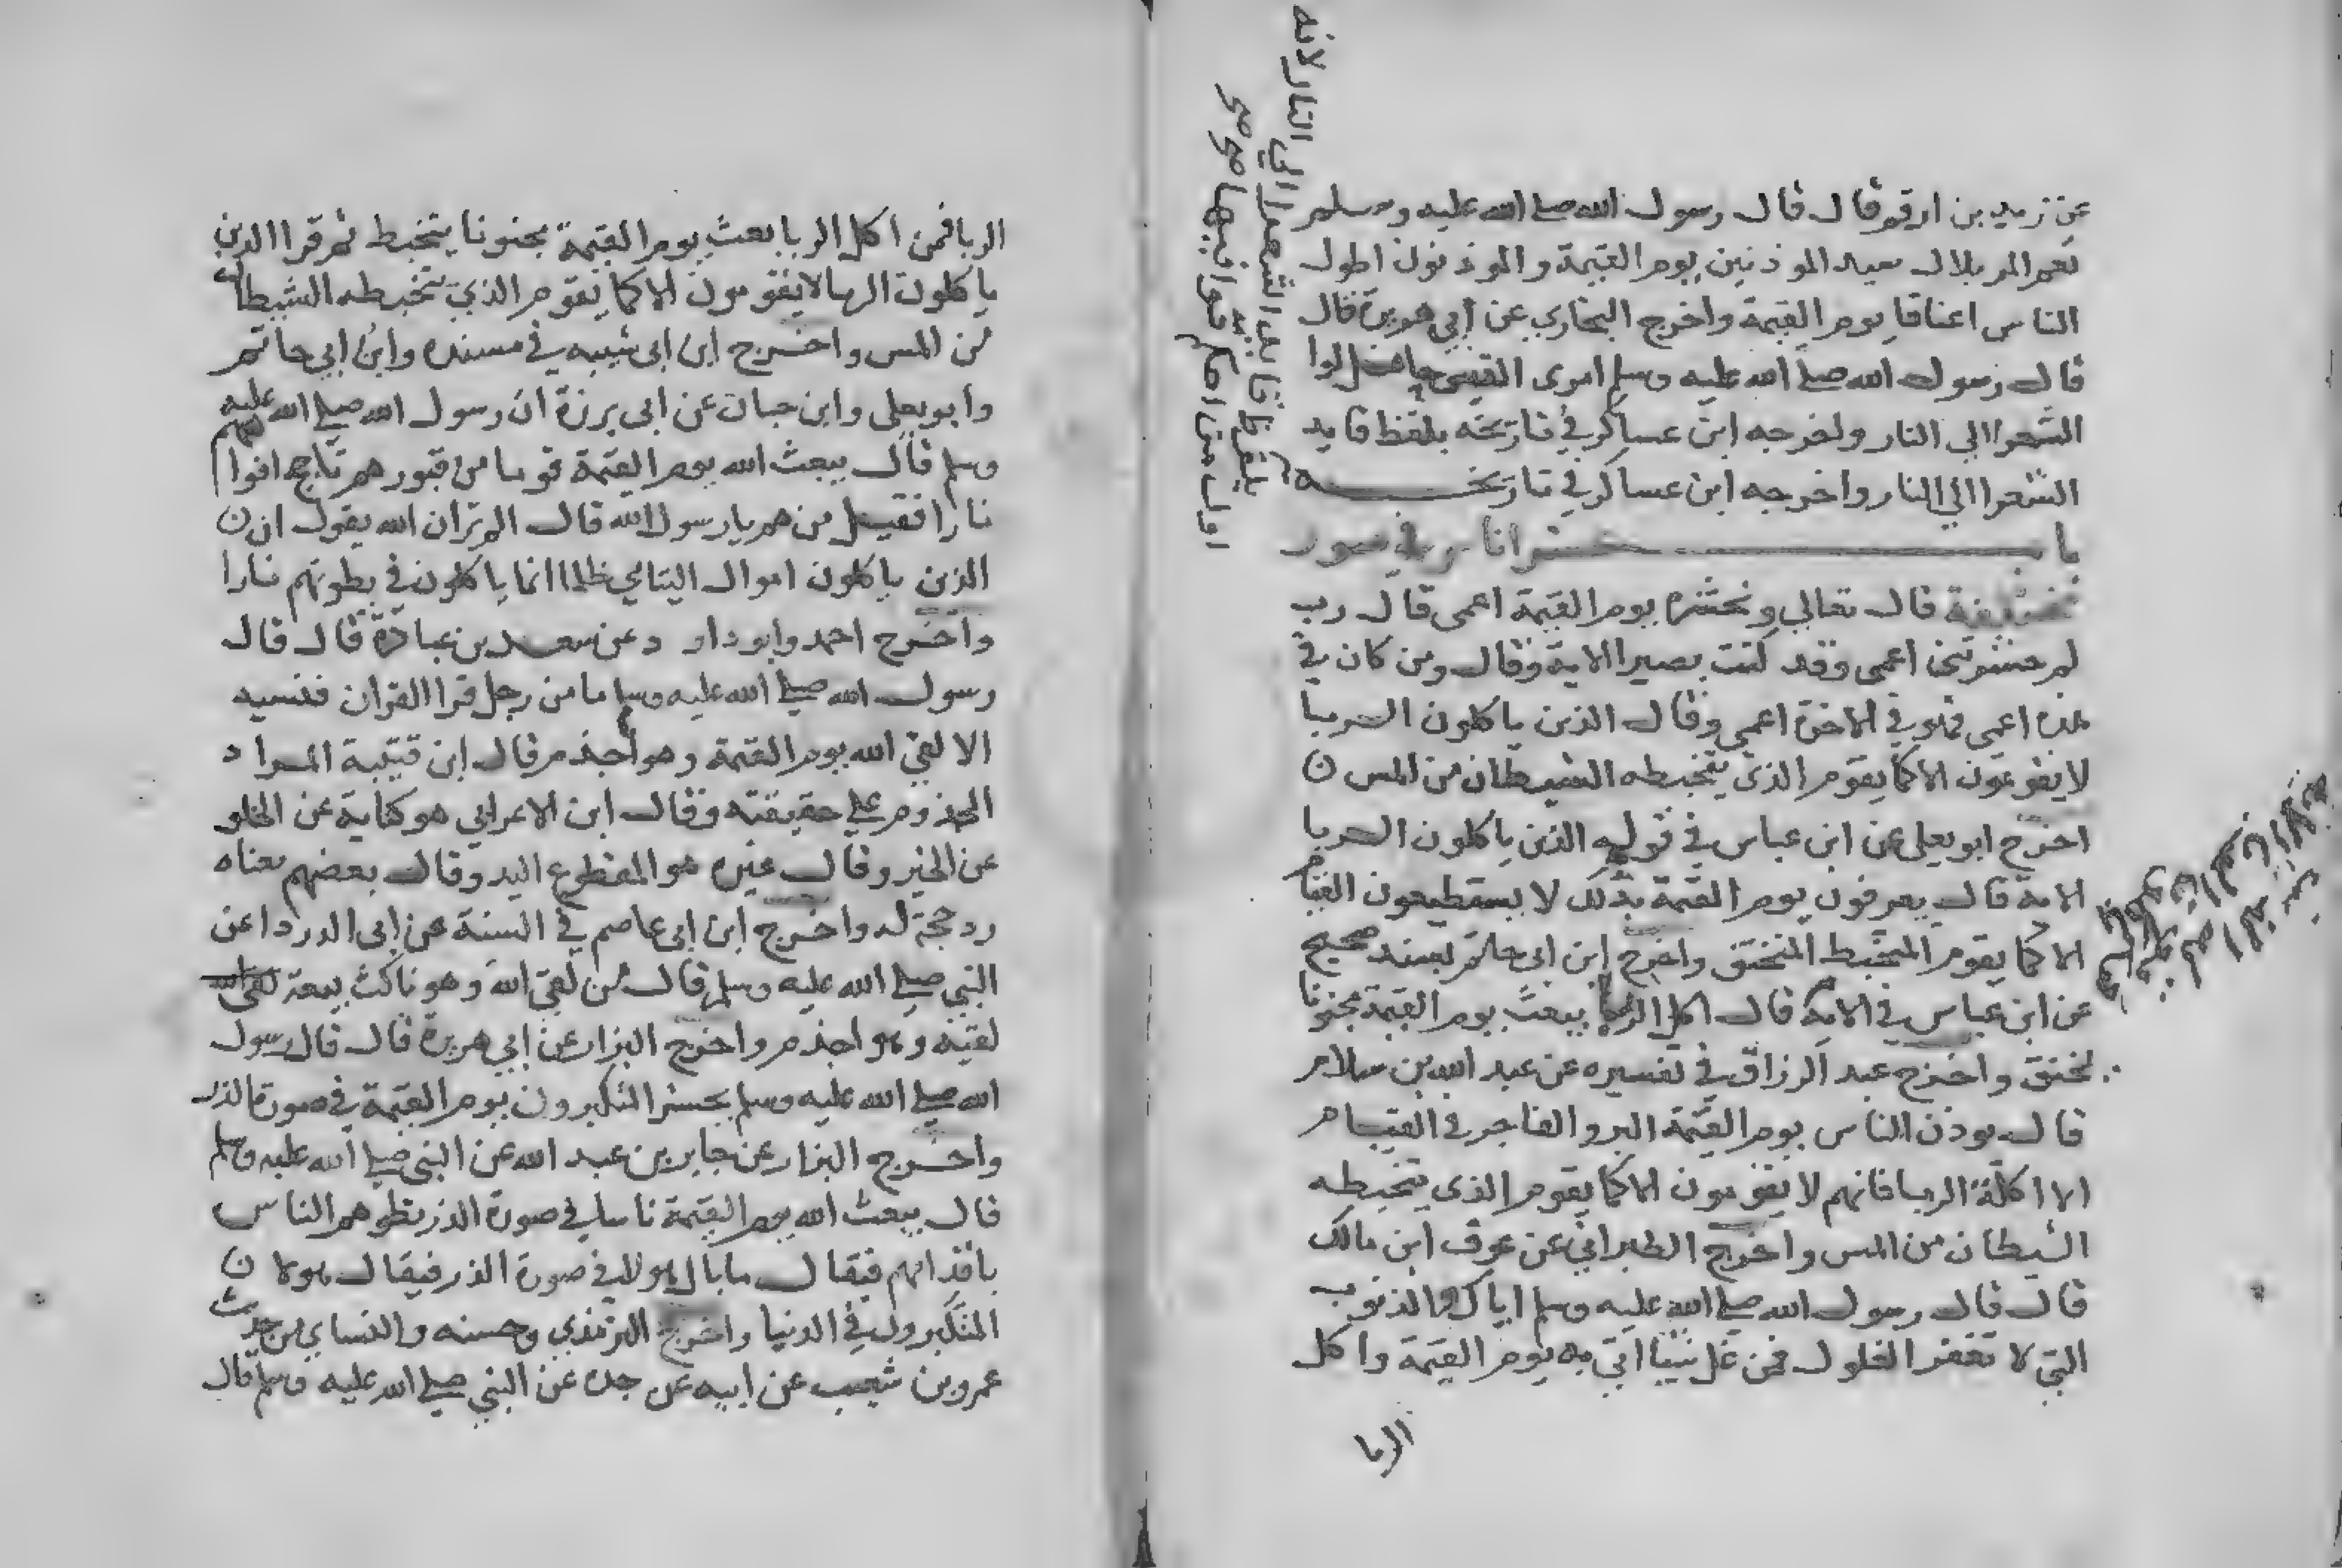 عن زيد بن ارقم قال قال رسول الله صلى الله عليه وسلم
نعم المر بلال سيد الموذنين يوم القيمة والموذنون اطول
الناس اعناقا يوم القيمة واخرج البخاري عن ابي هريرة قال
قال رسول الله صلى الله عليه وسلم امرى القيس لوا
الشعرا الي النار ولخرجه ابن عساكر في تاريخه بلفظ قايد
الشعرا الي النار واخرجه ابن عساكر في تاريخه
باب حشر اناس في صور
مختلفة قال تعالي ونحشره يوم القيمة اعمى قال رب
لم حشرتني اعمى وقد كنت بصيرا الاية وقال ومن كان في
هذه اعمى فهو في الاخرة اعمى وقال الذين ياكلون الربا
لا يقومون الا كما يقوم الذي يتخبطه الشيطان من المس ن
اخرج ابو يعلى عن ابن عباس في قوله الذين ياكلون الربا
الاية قال يعرفون يوم القيمة بذلك لا يستطيعون القيام
الا كما يقوم المتخبط المنخنق واخرج ابن ابي حاتم بسند صحيح
عن ابن عباس في الاية قال اكل الربا يبعث يوم القيمة مجنونا
يخنق واخرج عبد الرزاق في تفسيره عن عبد الله بن سلام
قال يوذن الناس يوم القيمة البر والفاجر في القيام
الا اكلة الربا فانهم لا يقومون الا كما يقوم الذي يتخبطه
الشيطان من المس واخرج الطبراني عن عوف ابن مالك
قال قال رسول الله صلى الله عليه وسلم اياك والذنوب
التي لا تغفر الغلول فمن غل شيا اتي به يوم القيمة واكل
الربا
بلفظ قايد الشعرا الي النار لانه
اول من احكم قوافيها صح صح
الربا فمن اكل الربا بعث يوم القيمة مجنونا يتخبط ثم قرا الذين
ياكلون الربا لا يقومون الا كما يقوم الذي يتخبطه الشيطان
من المس واخرج ابن ابي شيبه في مسنده وابن ابي حاتم
وابو يعلى وابن حبان عن ابي برزة ان رسول الله صلى الله عليه
وسلم قال يبعث الله يوم القيمة قوما من قبورهم تاجج افواههم
نارا فقيل من هم يا رسول الله قال الم تر ان الله يقول ان ن
الذين ياكلون اموال اليتامي ظلما انما ياكلون في بطونهم نارا
واخرج احمد وابو داود عن سعد بن عبادة قال قال
رسول الله صلى الله عليه وسلم ما من رجل قرا القران فنسيه
الا لقي الله يوم القيمة وهو اجذم قال ابن قتيبة المراد
المجذوم على حقيقته وقال ابن الاعرابي هو كناية عن الخلو
عن الخير وقال غيره هو المقطوع اليد وقال بعضهم معناه
رد حجة له واخرج ابن ابي عاصم في السنة عن ابي الدرداء عن
النبي صلى الله عليه وسلم قال من لقي الله وهو ناكث بيعة
لقيه وهو اجذم واخرج البزار عن ابي هريرة قال قال رسول
الله صلى الله عليه وسلم يحشر المتكبرون يوم القيمة في صورة الذر
واخرج البزار عن جابر بن عبد الله عن النبي صلى الله عليه وسلم
قال يبعث الله يوم القيمة ناسا في صورة الذر يطوهم الناس
باقدامهم فيقال ما بال هولا في صورة الذر فيقال هولا ن
المتكبرون في الدنيا واخرج الترمذي وحسنه والنساي من حديث
عمرو بن شعيب عن ابيه عن جده عن النبي صلى الله عليه وسلم قال